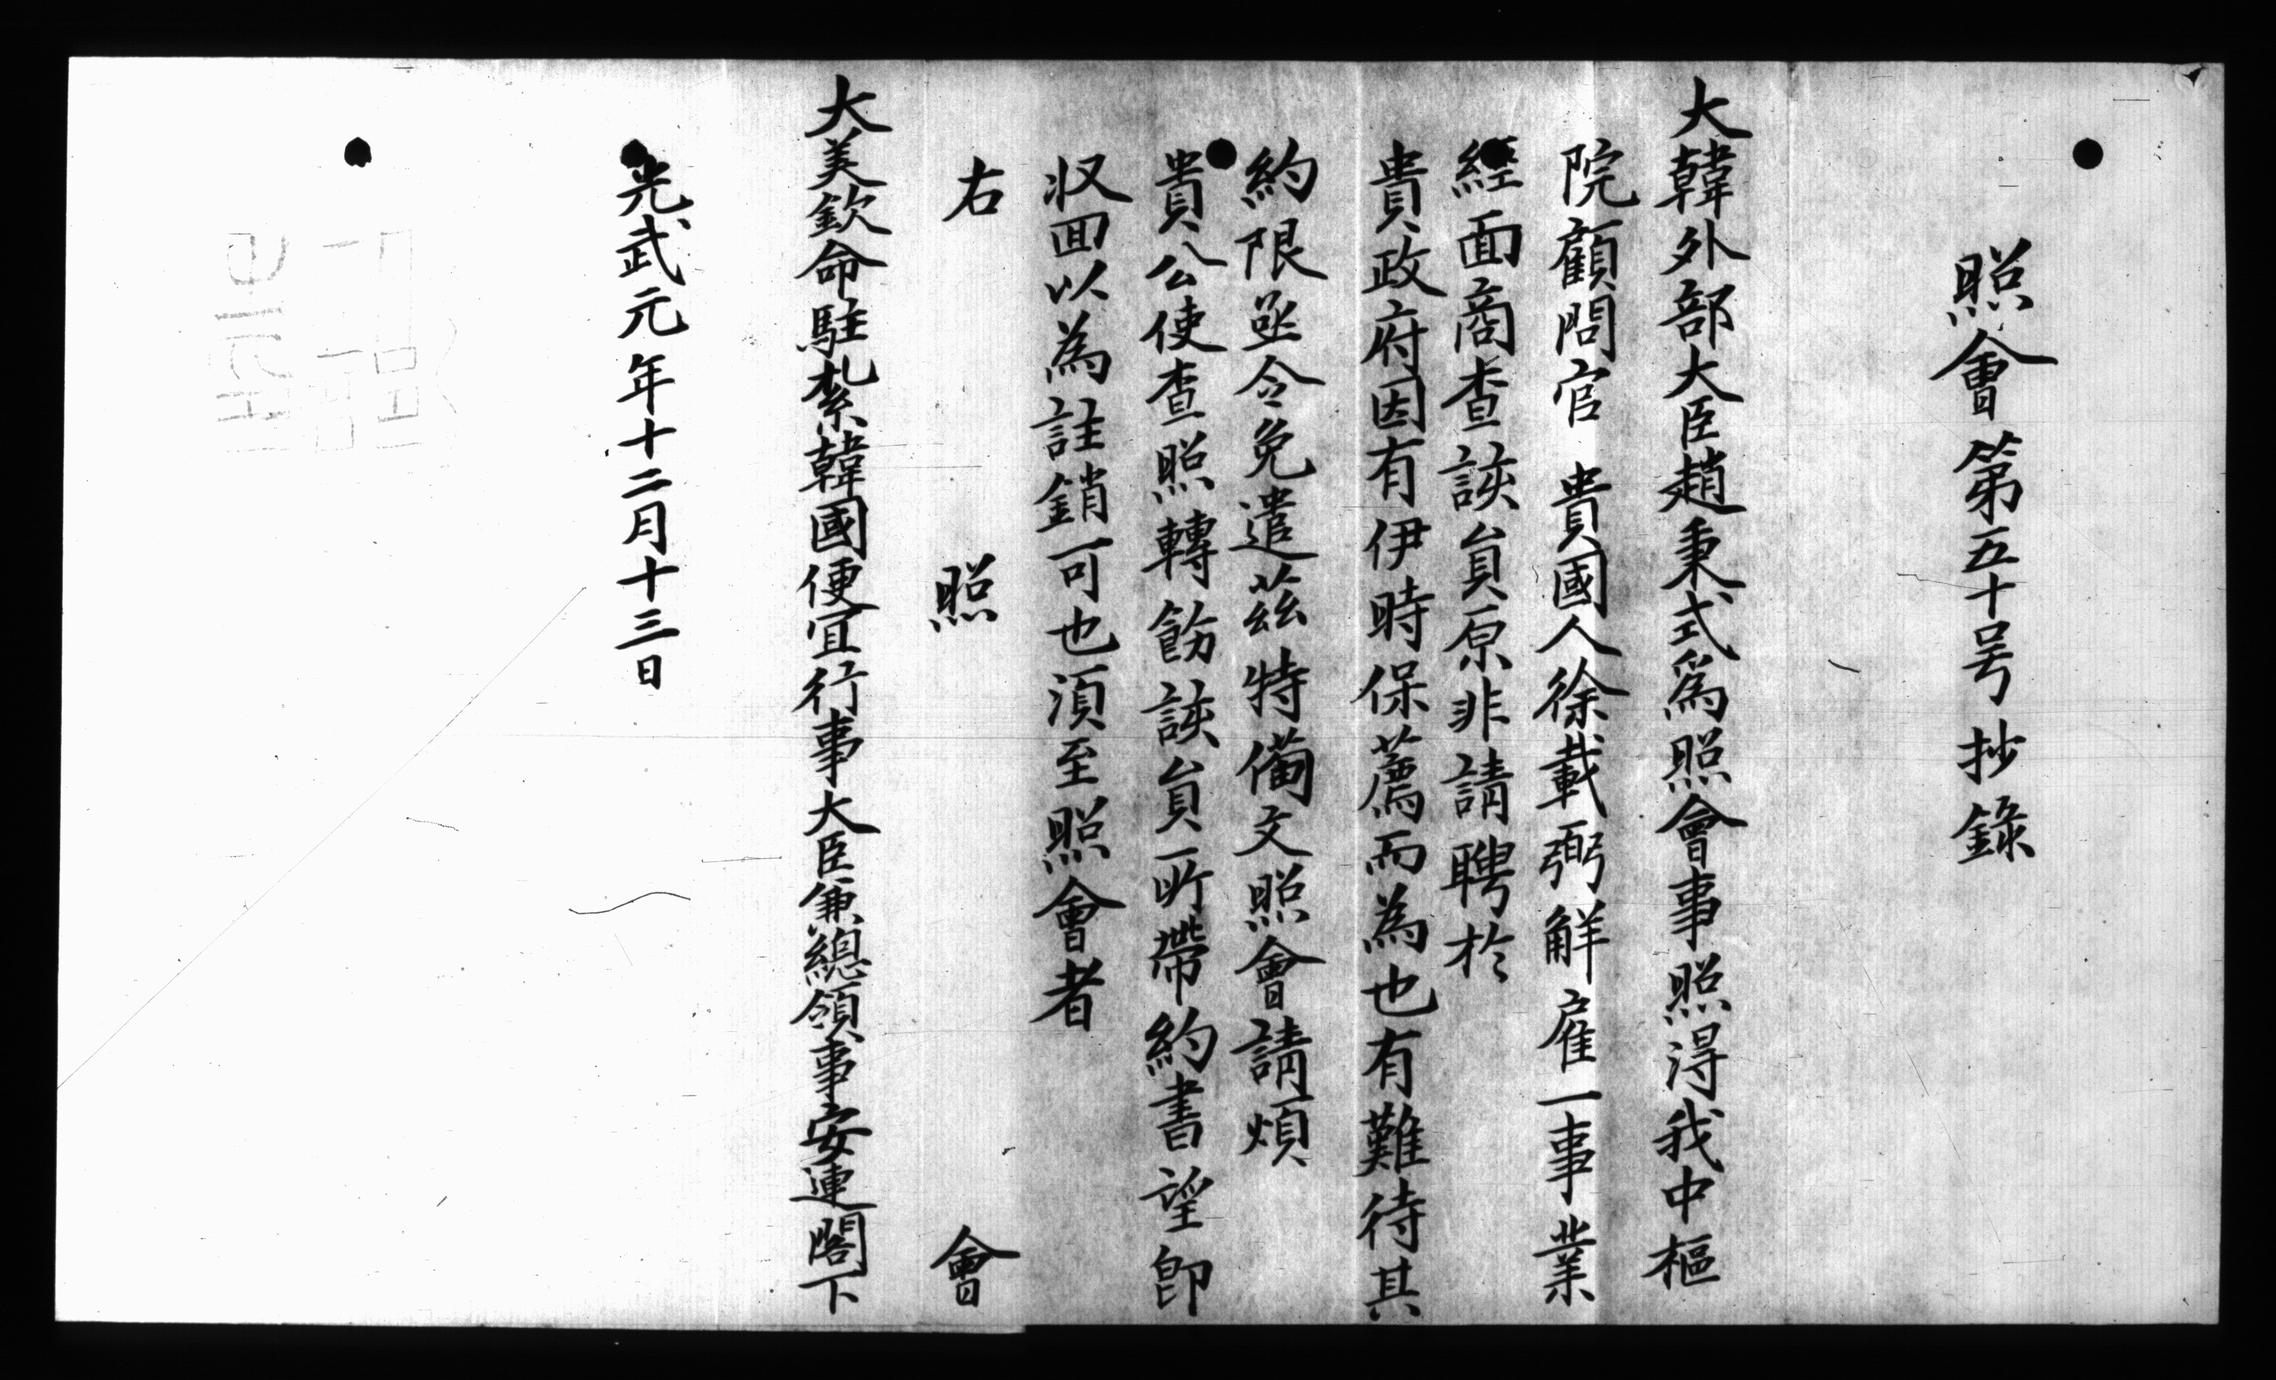 照會第五十号抄錄
大韓外部大臣趙秉式為照會事照淂我中樞
院顧問官 貴國人徐載弼觧雇一事業
經面商查該貟原非請聘於
貴政府因有伊時保薦而為也有難待其
約限亟令免遣茲特備文照會請煩
貴公使查照轉飭該貟所帶約書望卽
収回以為註銷可也須至照會者
右 照 會
大美欽命駐紮韓國便宜行事大臣兼總領事安連閣下
光武元年十二月十三日